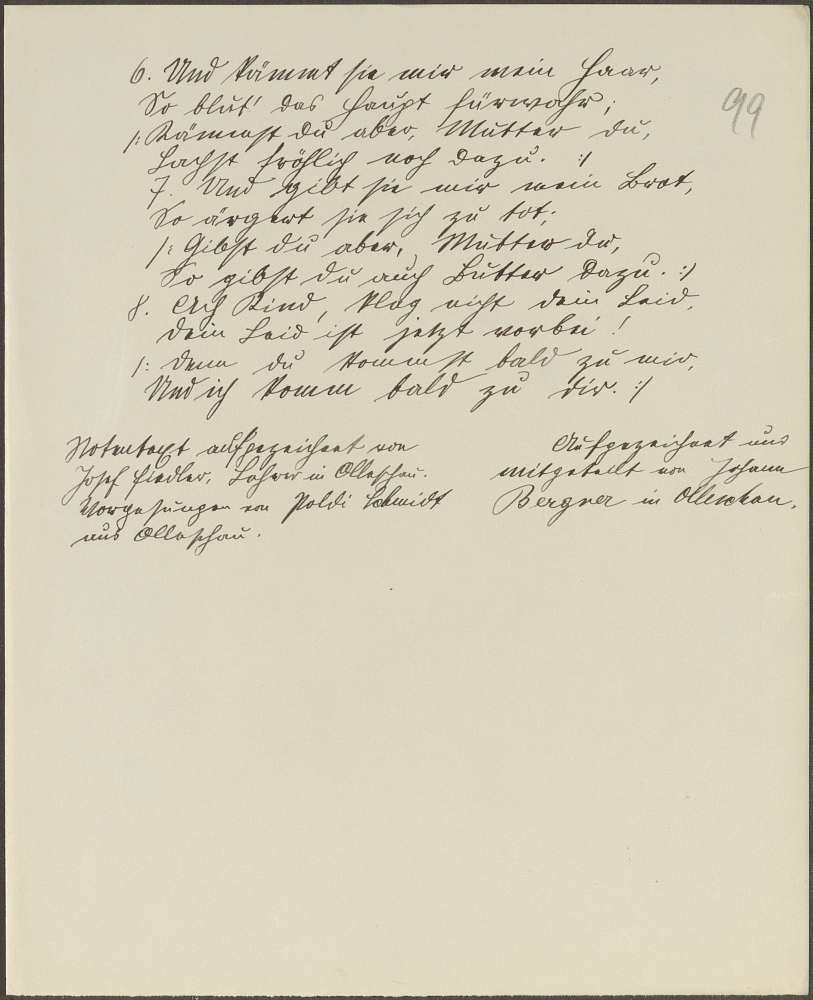 99
6. Und kämmt sie mir mein Haar,
So blut' das Haupt fürwahr;
/: Kämmst du aber, Mutter du,
Lachst fröhlich noch dazu. :/
7. Und gibt sie mir mein Brot,
So ärgert sie sich zu tot;
/: Gibst du aber, Mutter du,
So gibst du auch Butter dazu. :/
8. Ach Kind, klag nicht dein Leid,
Dein Leid ist jetzt vorbei!
/: Denn du kommst bald zu mir,
Und ich komm bald zu dir. :/
Notentext aufgezeichnet von
Josef Fiedler, Lehrer in Olleschau.
Vorgesungen von Poldi Schmidt
aus Olleschau.
Aufgezeichnet und
mitgeteilt von Johann
Bergner in Olleschau.